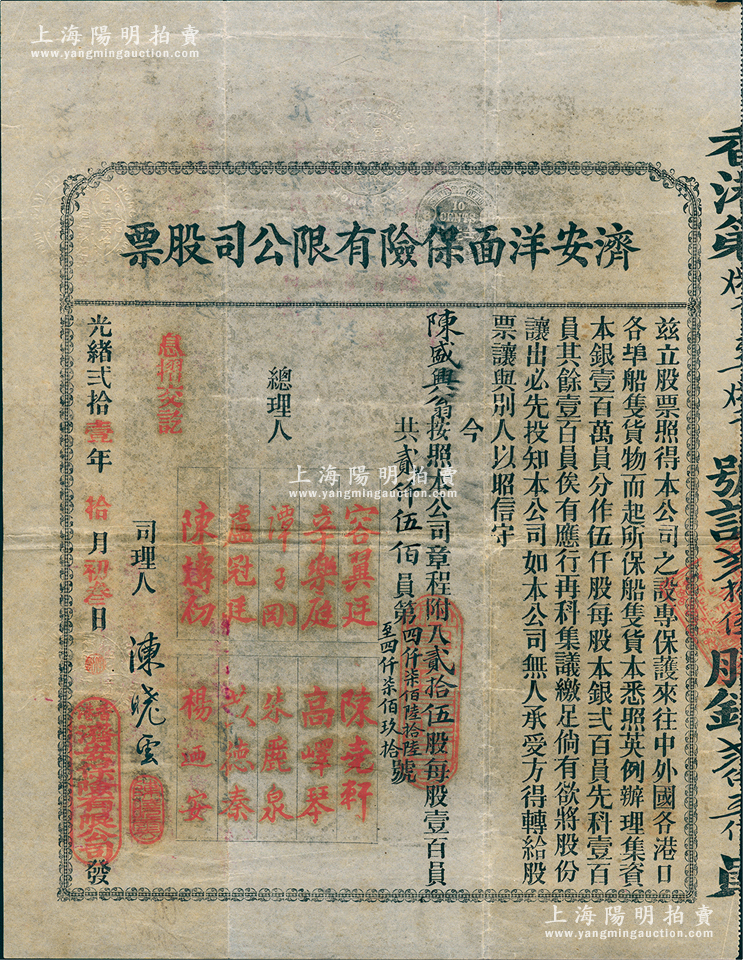 上海陽明拍賣
www.yangmingauction.com
10
CENTS
濟安洋面保險有限公司股票
茲立股票照得本公司之設專保護來往中外國各港口
各埠船隻貨物而起所保船隻貨本悉照英例辦理集資
本銀壹百萬員分作伍仟股每股本銀弍百員先科壹百
員其餘壹百員俟有應行再科集議繳足倘有欲將股份
讓出必先投知本公司如本公司無人承受方得轉給股
票讓與別人以昭信守
今
陳盛興翁按照本公司章程附入貳拾伍股每股壹百員
共貳仟伍佰員第四仟柒佰陸拾陸
至四仟柒佰玖拾號
總理人
容翼廷
陳堯軒
辛樂庭
高嶧琴
譚子剛
朱麗泉
盧冠廷
德秦
陳博初
楊迺安
司理人
陳曉雲
息摺交訖
光緒弍拾壹年拾月初叁日
香港濟安洋面保險有限公司
發
香港第
號計
股銀
員
上海陽明拍賣
www.yangmingauction.com
上海陽明拍賣
www.yangmingauction.com